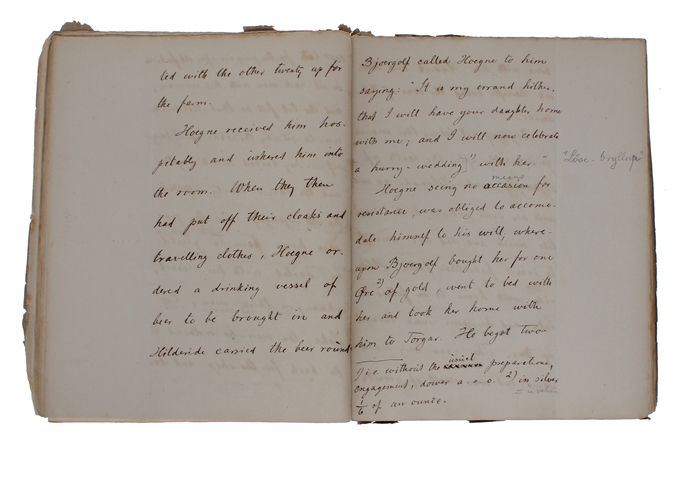 ted with the other twenty up for
the farm.
Hoegne received him hos-
pitably and ushers him into
the room. When they then
had put off their cloaks and
travelling clothes, Hoegne or-
dered a drinking vessel of
beer to be brought in and
Hilderide carried the beer round.
Bjoergolf called Hoegne to him
saying: "It is my errand hither,
that I will have your daughter home
with me; and I will now celebrate
a hurry-wedding" 1) with her.
"Löse-bryllup"
means
Hoegne seing no occasion for
resistance, was obliged to accomo-
date himself to his will, where-
upon Bjoergolf bought her for one
Øre 2) of gold, went to bed with
her and took her home with
him to Torgar. He begat two
1) i.e. without the usual preparations,
engagement, dower a.s.o. 2) in silver
1/6 of an ounce.